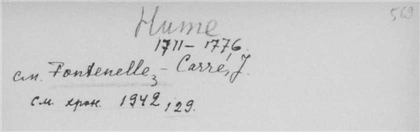 569
Hume
1711-1776.
см. Fontenelle - Carré, J.
см. хрон. 1942, 29.